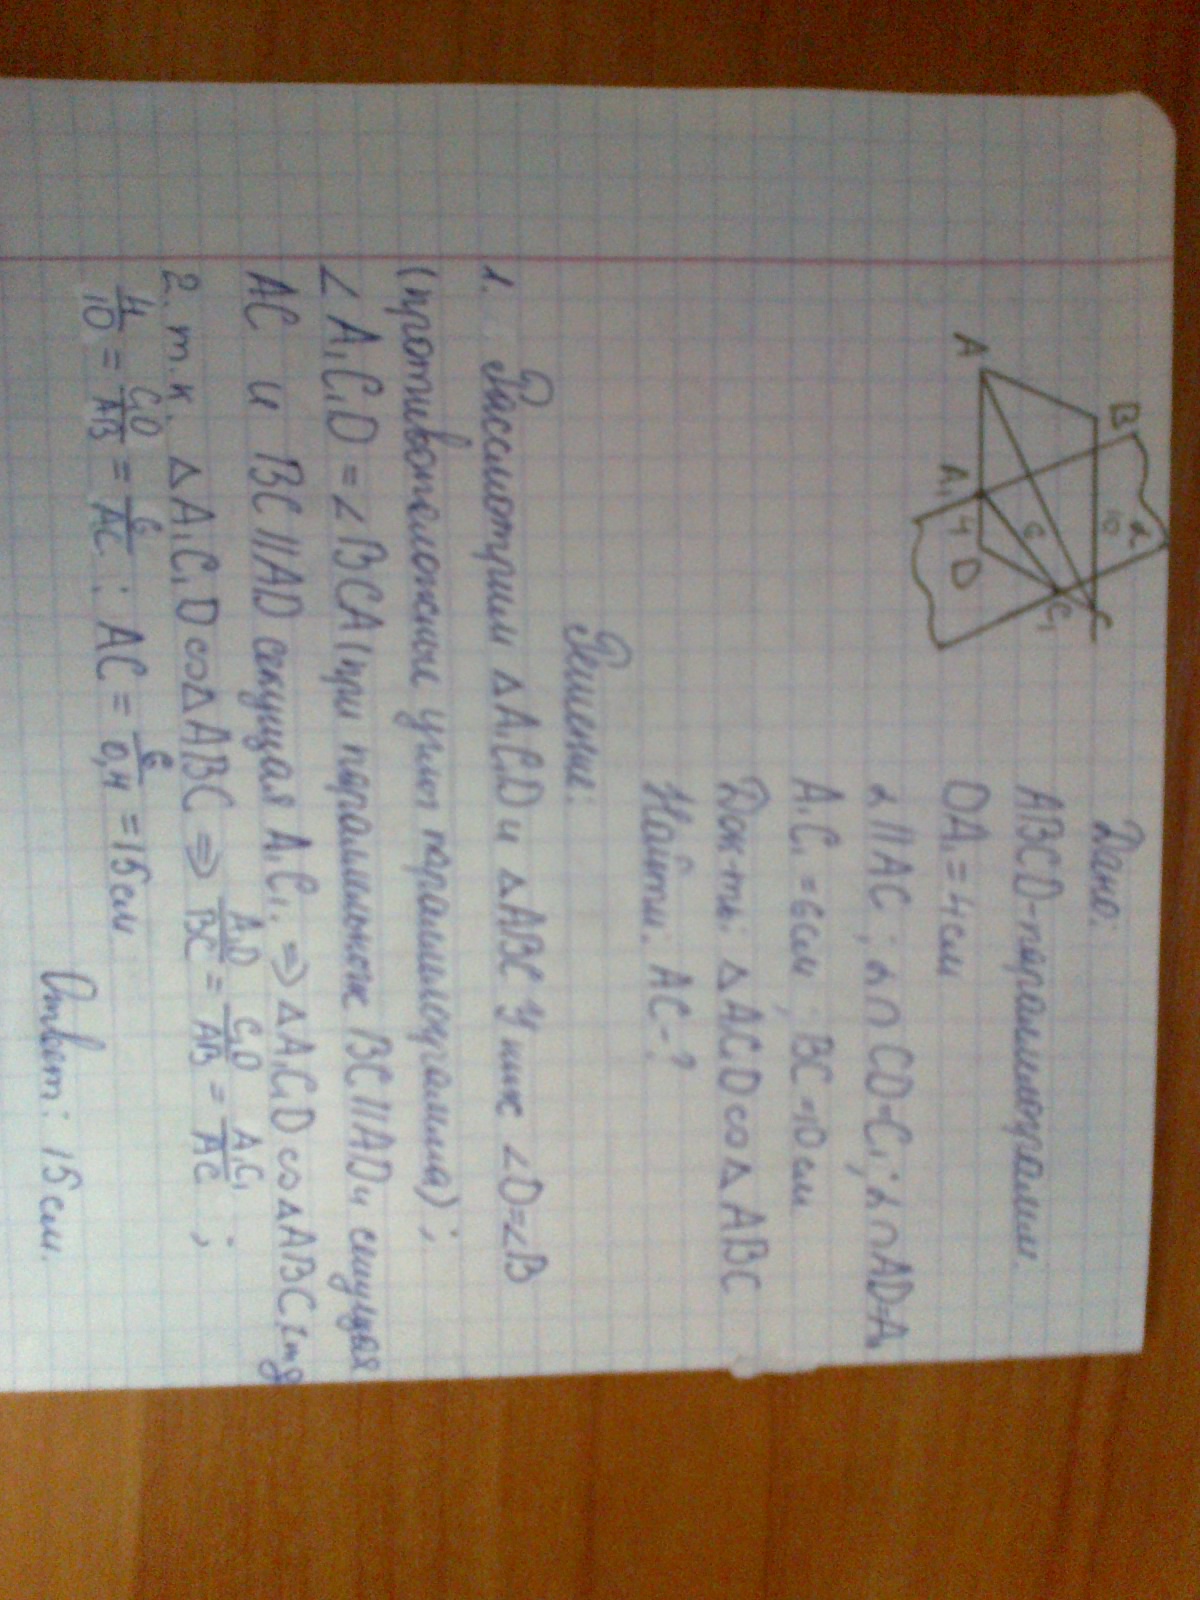 B
α
10
C
6
C₁
A
A₁
4
D
Дано:
ABCD-параллелограмм.
DA₁ = 4см
α || AC ; α ∩ CD=C₁; α ∩ AD=A₁
A₁C₁ = 6см ; BC =10см.
Док-ть: △ A₁C₁D ∾ △ ABC
Найти: AC-?
Решение:
1. Рассмотрим △ A₁C₁D и △ ABC У них ∠D=∠B
(противоположные углы параллелограмма);
∠ A₁C₁D = ∠ BCA (при параллельных BC || AD и секущая
AC и BC || AD секущая A₁C₁. ⇒ △ A₁C₁D ∾ △ ABC, чтд
2. т.к. △ A₁C₁D ∾ △ ABC ⇒ A₁D/BC = C₁D/AB = A₁C₁/AC ;
4/10 = C₁D/AB = 6/AC ; AC = 6/0,4 = 15см
Ответ: 15см.